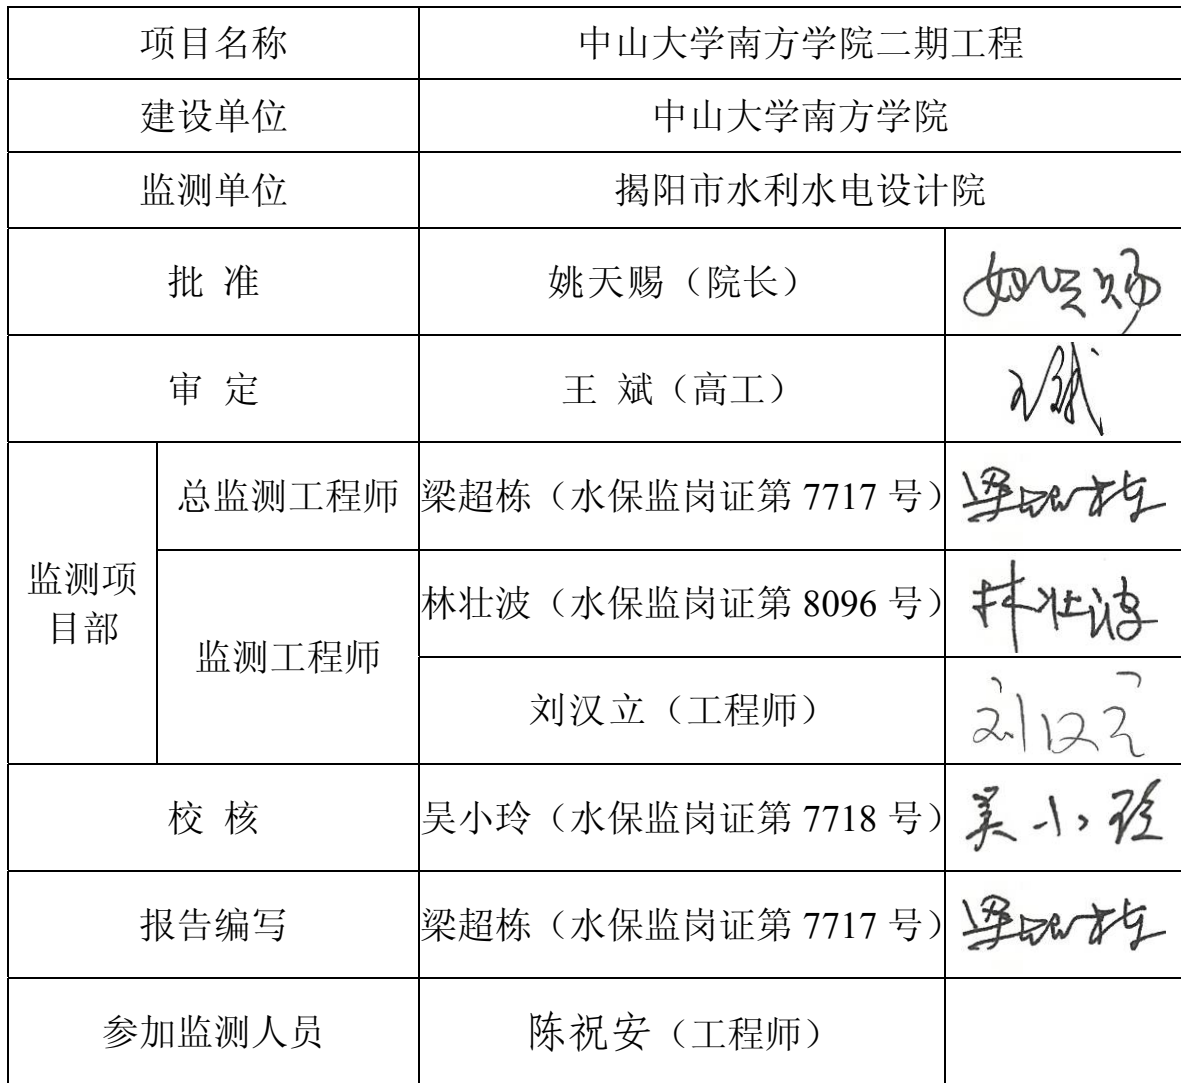 项目名称 中山大学南方学院二期工程
建设单位 中山大学南方学院
监测单位 揭阳市水利水电设计院
批 准 姚天赐（院长） 姚天赐
审 定 王 斌（高工） 王斌
监测项目部 总监测工程师 梁超栋（水保监岗证第 7717 号） 梁超栋
监测工程师 林壮波（水保监岗证第 8096 号） 林壮波
刘汉立（工程师） 刘汉立
校 核 吴小玲（水保监岗证第 7718 号） 吴小玲
报告编写 梁超栋（水保监岗证第 7717 号） 梁超栋
参加监测人员 陈祝安（工程师）